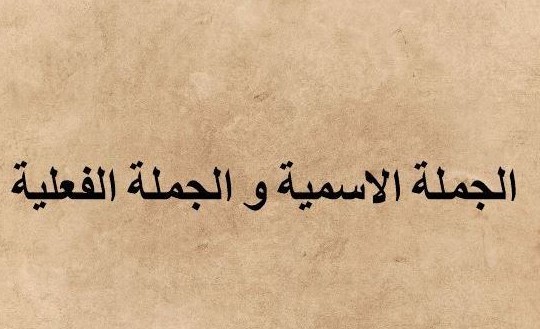 الجملة الاسمية و الجملة الفعلية